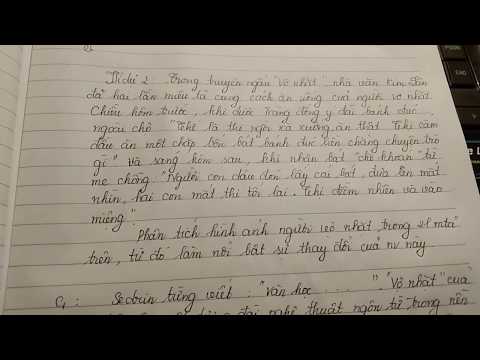 Ví dụ 2: Trong truyện ngắn "Vợ nhặt" nhà văn Kim Lân
đã hai lần miêu tả cung cách ăn uống của người vợ nhặt
Chiều hôm trước, khi được Tràng đồng ý đãi bánh đúc
ngoài chợ "Thế là thị ngồi xà xuống, ăn thật. Thị cắm
đầu ăn một chặp bốn bát bánh đúc liền chẳng chuyện trò
gì" Và sáng hôm sau, khi nhận bát "chè khoán" từ
mẹ chồng "Người con dâu đón lấy cái bát, đưa lên mắt
nhìn, hai con mắt thị tối lại. Thị điềm nhiên và vào
miệng".
Phân tích hình ảnh người vợ nhặt trong 2 l mtả
trên, từ đó làm nổi bật sự thay đổi của nv này
C1: Sêđrin từng viết: "Văn học ...... " "Vợ nhặt" của
nghệ thuật ngôn từ trong nền